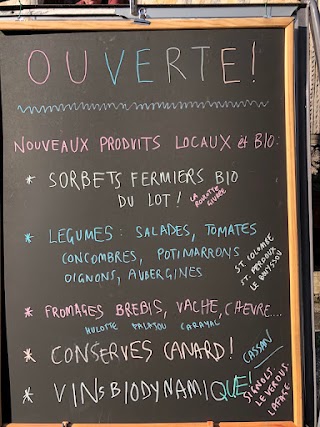 OUVERTE!
NOUVEAUX PRODUITS LOCAUX et BIO:
* SORBETS FERMIERS BIO
DU LOT!
LA
GIVRÉE
* LÉGUMES: SALADES, TOMATES
CONCOMBRES, POTIMARRONS
OIGNONS, AUBERGINES
ST. COLOMBE
ST. PERDOUX
LE BOUYSSOU
* FROMAGES BREBIS, VACHE, CHEVRE....
HULOTTE PALATOU CARAYAL
* CONSERVES CANARD!
CASSAN
* VINS BIODYNAMIQUE!
SIGNOLS
LE VERDUS
LAFAGE